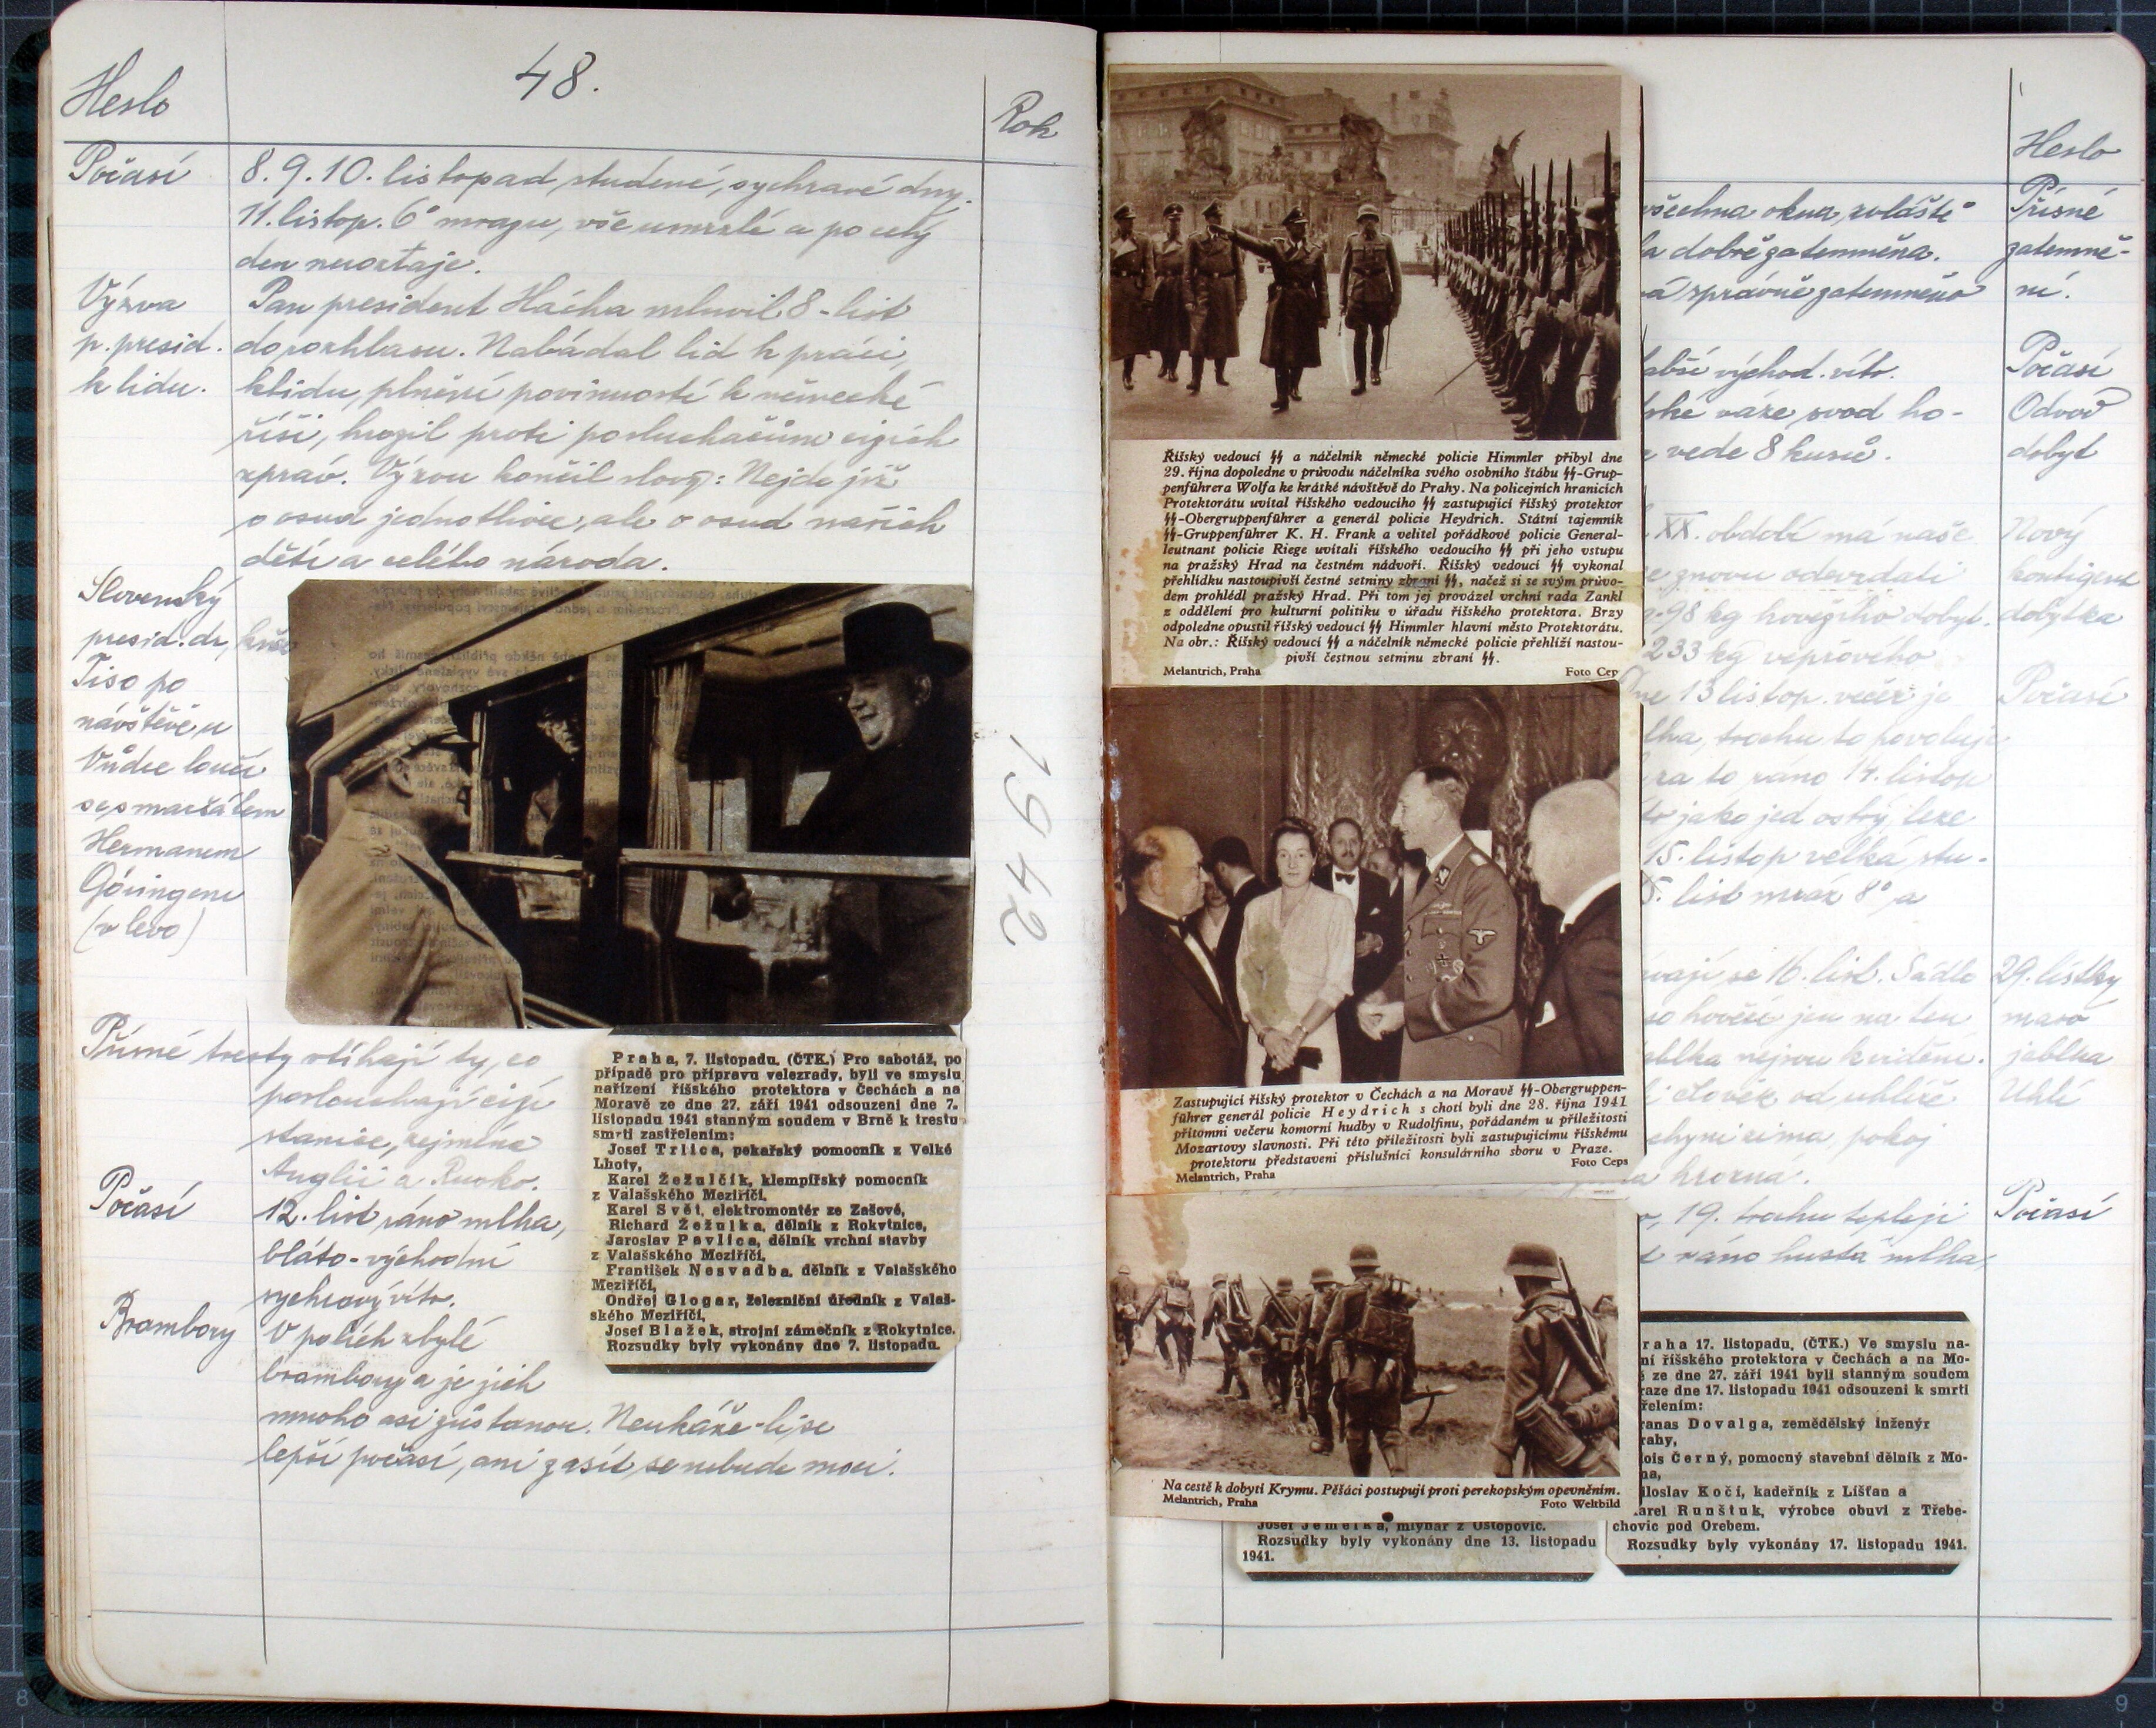 Heslo
48.
Rok
Počasí
8. 9. 10. listopad, studené, sychravé dny.
11. listop. 6° mrazu, vše umrzlé a po celý
den neroztaje.
Výzva
p. presid.
k lidu.
Pan president Hácha mluvil 8 - list
do rozhlasu. Nabádal lid k práci,
klidu, plnění povinností k německé
říši, hrozil proti posluchačům cizích
zpráv. Výzvu končil slovy: Nejde již
o osud jednotlivce, ale o osud našich
dětí a celého národa.
Slovenský
presid. dr,
Tiso po
návštěvě u
Vůdce loučí
se s maršálem
Hermanem
Göringem
(v levo)
1942
Přísné tresty stíhají ty, co
poslouchají cizí
stanice, zejména
Anglii a Rusko.
Počasí
12. list ráno mlha,
bláto - východní
sychravý vítr.
Brambory
V polích zbylé
brambory a je jich
mnoho asi zůstanou. Neukáže-li se
lepší počasí, ani zasít se nebude moci.
Praha, 7. listopadu. (ČTK.) Pro sabotáž, po
případě pro přípravu velezrady, byli ve smyslu
nařízení říšského protektora v Čechách a na
Moravě ze dne 27. září 1941 odsouzeni dne 7.
listopadu 1941 stanným soudem v Brně k trestu
smrti zastřelením:
Josef Trlica, pekařský pomocník z Velké
Lhoty,
Karel Žežulčík, klempířský pomocník
z Valašského Meziříčí,
Karel Svět, elektromontér ze Zašové,
Richard Žežulka, dělník z Rokytnice,
Jaroslav Pavlica, dělník vrchní stavby
z Valašského Meziříčí,
František Nesvadba, dělník z Valašského
Meziříčí,
Ondřej Glogar, železniční úředník z Valaš-
ského Meziříčí,
Josef Blažek, strojní zámečník z Rokytnice.
Rozsudky byly vykonány dne 7. listopadu.
Říšský vedoucí SS a náčelník německé policie Himmler přibyl dne
29. října dopoledne v průvodu náčelníka svého osobního štábu SS-Grup-
penführera Wolfa ke krátké návštěvě do Prahy. Na policejních hranicích
Protektorátu uvítal říšského vedoucího SS zastupující říšský protektor
SS-Obergruppenführer a generál policie Heydrich. Státní tajemník
SS-Gruppenführer K. H. Frank a velitel pořádkové policie General-
leutnant policie Riege uvítali říšského vedoucího SS při jeho vstupu
na pražský Hrad na čestném nádvoří. Říšský vedoucí SS vykonal
přehlídku nastoupivší čestné setniny zbraní SS, načež si se svým průvo-
dem prohlédl pražský Hrad. Při tom jej provázel vrchní rada Zankl
z oddělení pro kulturní politiku v úřadu říšského protektora. Brzy
odpoledne opustil říšský vedoucí SS Himmler hlavní město Protektorátu.
Na obr.: Říšský vedoucí SS a náčelník německé policie přehlíží nastou-
pivší čestnou setninu zbraní SS.
Melantrich, Praha Foto Cep
Zastupující říšský protektor v Čechách a na Moravě SS-Obergruppen-
führer generál policie Heydrich s chotí byli dne 28. října 1941
přítomni večeru komorní hudby v Rudolfinu, pořádaném u příležitosti
Mozartovy slavnosti. Při této příležitosti byli zastupujícímu říšskému
protektoru představeni příslušníci konsulárního sboru v Praze.
Melantrich, Praha Foto Ceps
Na cestě k dobytí Krymu. Pěšáci postupují proti perekopským opevněním.
Melantrich, Praha Foto Weltbild
Josef Jemelka, mlynář z Ostopovic.
Rozsudky byly vykonány dne 13. listopadu
1941.
Heslo
všechna okna, zvláště
dobře zatemněna.
správně zatemněno
Přísné
zatemně-
ní.
východ. vítr.
Počasí
váze, svod ho-
vede 8 kusů.
Odvod
dobyt
XX. období má naše
znovu odevzdati
98 kg hovězího dobyt.
233 kg vepřového
Nový
kontigent
dobytka
13 listop. večer je
mlha, trochu to povoluje
to ráno 14. listop
jako jed ostrý, leze
15. listop velká, stu-
list mráz 8° a
Počasí
se 16. list. Sádlo
hovězí jen na ten
jablka nejsou k vidění.
člověk od uhlíře
zima, pokoj
hrozná.
29. lístky
maso
jablka
Uhlí
19. trochu tepleji
ráno hustá mlha,
Počasí
raha 17. listopadu. (ČTK.) Ve smyslu na-
ní říšského protektora v Čechách a na Mo-
ze dne 27. září 1941 byli stanným soudem
raze dne 17. listopadu 1941 odsouzeni k smrti
řelením:
ranas Dovalga, zemědělský inženýr
rahy,
lois Černý, pomocný stavební dělník z Mo-
na,
iloslav Kočí, kadeřník z Líšťan a
arel Runštuk, výrobce obuvi z Třebe-
chovic pod Orebem.
Rozsudky byly vykonány 17. listopadu 1941.